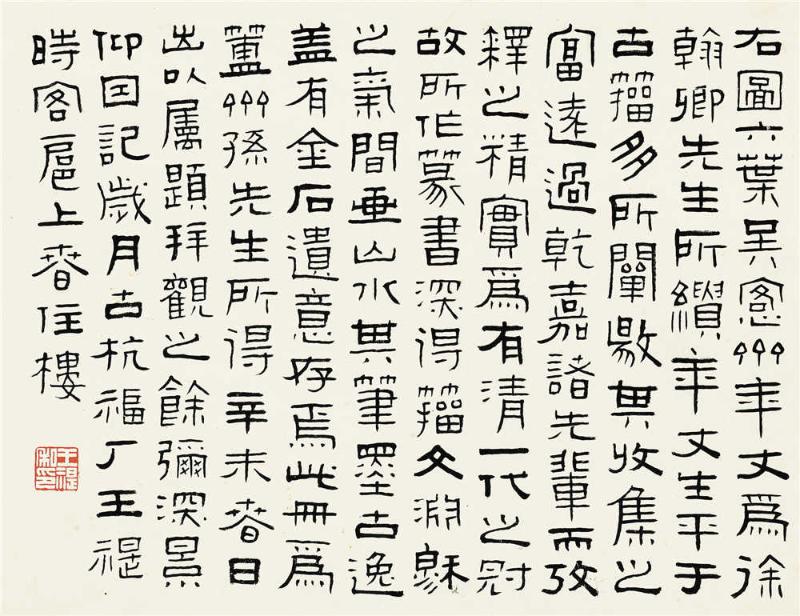 右圖六葉吳愙齋年丈爲徐
翰卿先生所繢年丈生平于
古籀多所闡敭其收集之
富遠過乾嘉諸先輩而攷
釋之精實爲有清一代之冠
故所作篆書深得籀文淵
之氣間畫山水其筆墨古逸
蓋有金石遺意存焉此冊爲
簠齋孫先生所得辛未春日
出以屬題拜觀之餘彌深景
仰因記歲月古杭福厂王禔
時客滬上春住樓
王禔私印